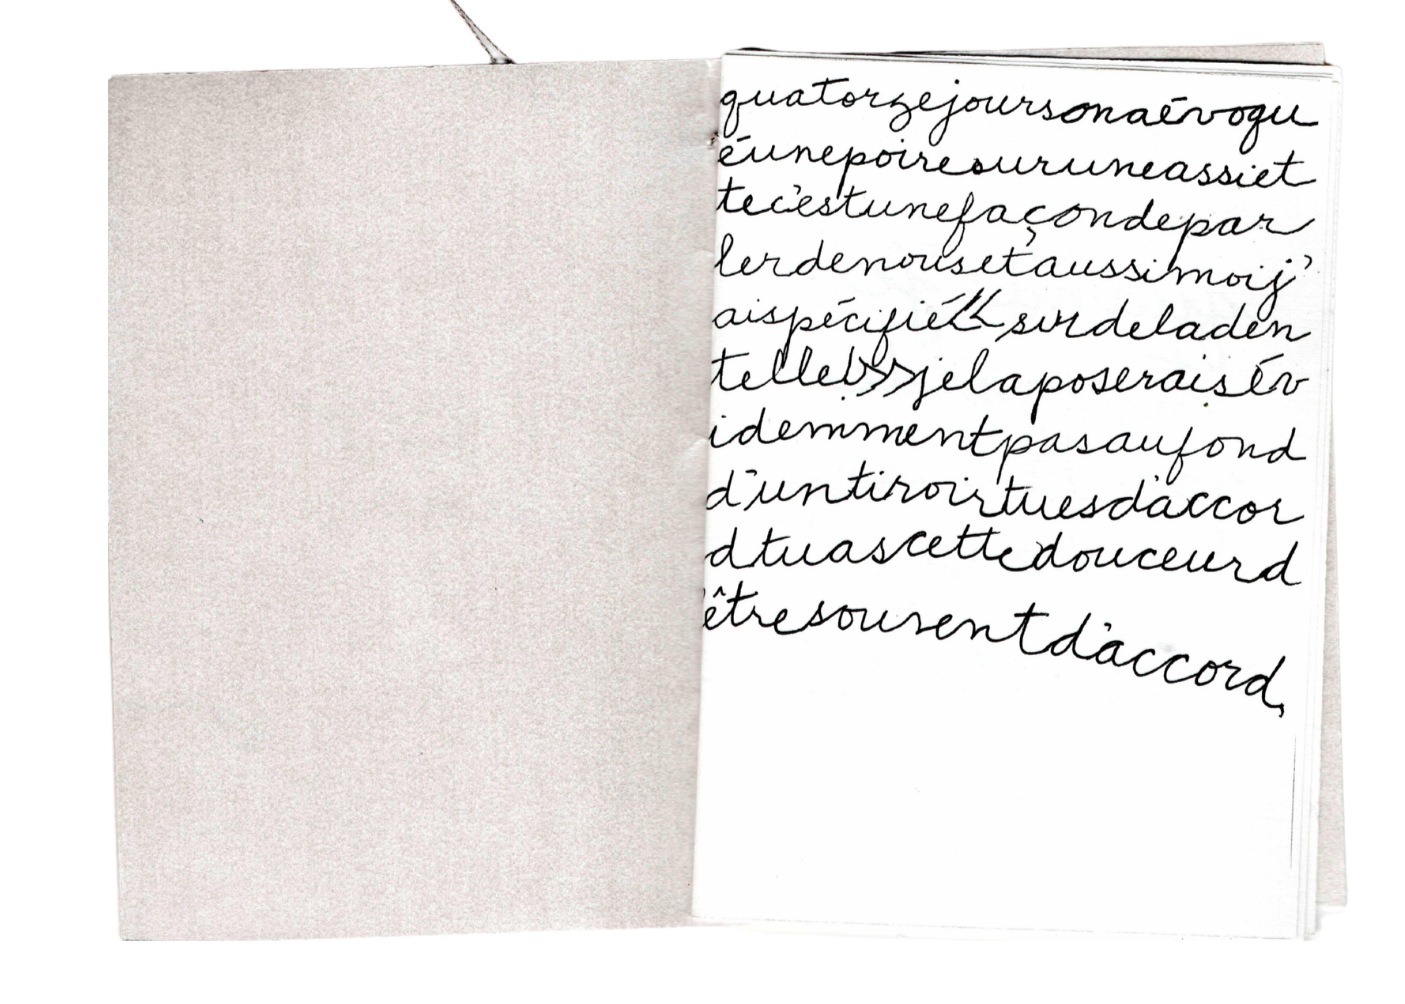 quatorzejoursonaévoqu
éunepoiresuruneassiet
tec'estunefaçondepar
lerdenousetaussimoij'
aispécifié«surdeladen
telle»jelaposeraisév
idemmentpasaufond
d'untiroirtuesd'accor
dtuascettedouceurd
'êtresouventd'accord,